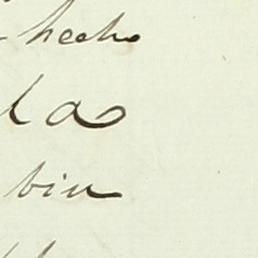 hecho
la
bin